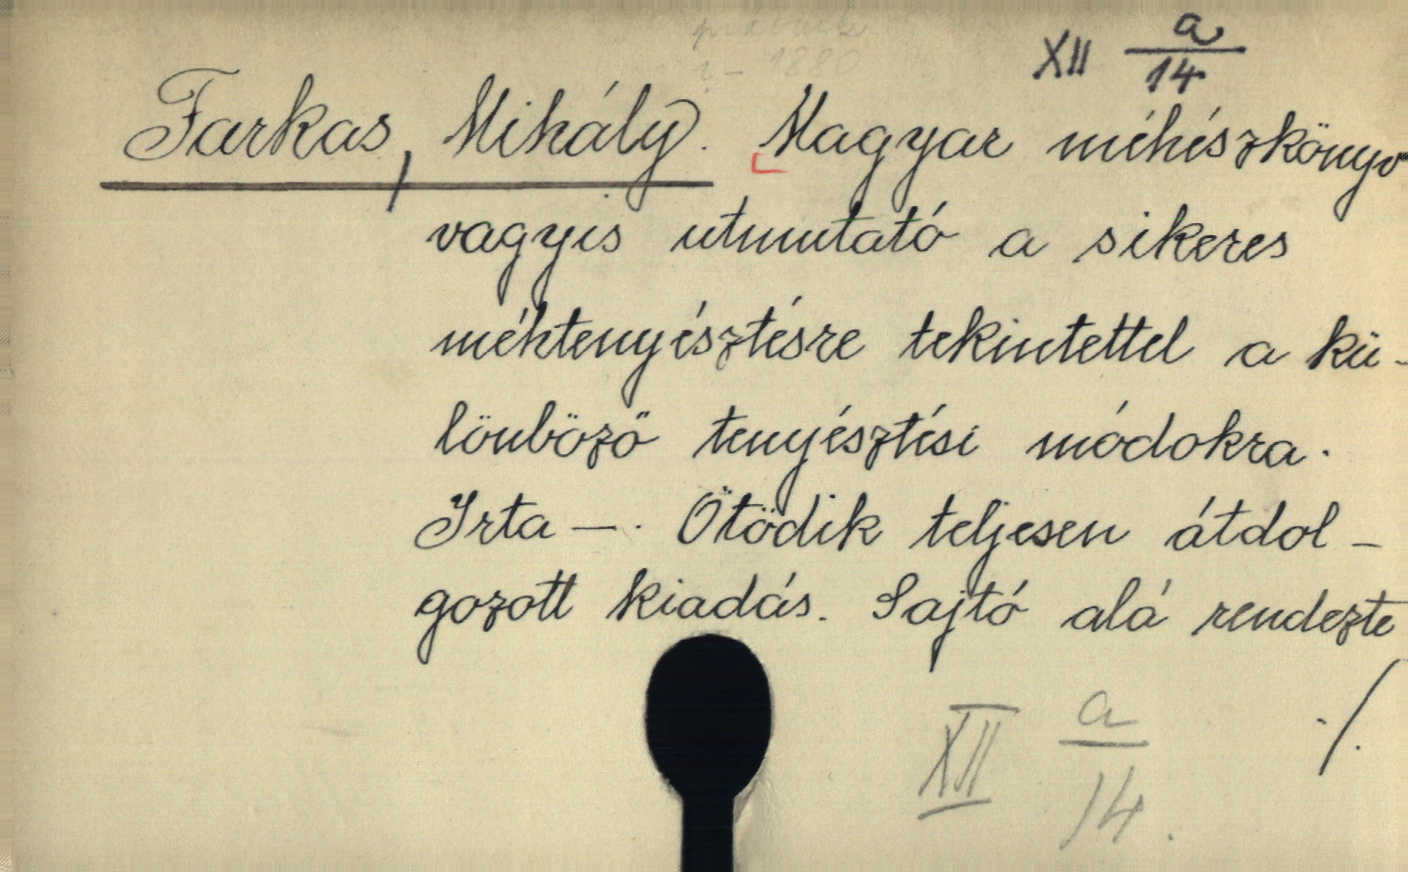 XII a/14
Farkas, Mihály. Magyar méhészkönyv
vagyis utmutató a sikeres
méhtenyésztésre tekintettel a kü-
lönböző tenyésztési módokra.
Irta —. Ötödik teljesen átdol-
gozott kiadás. Sajtó alá rendezte
./.
XII a/14.